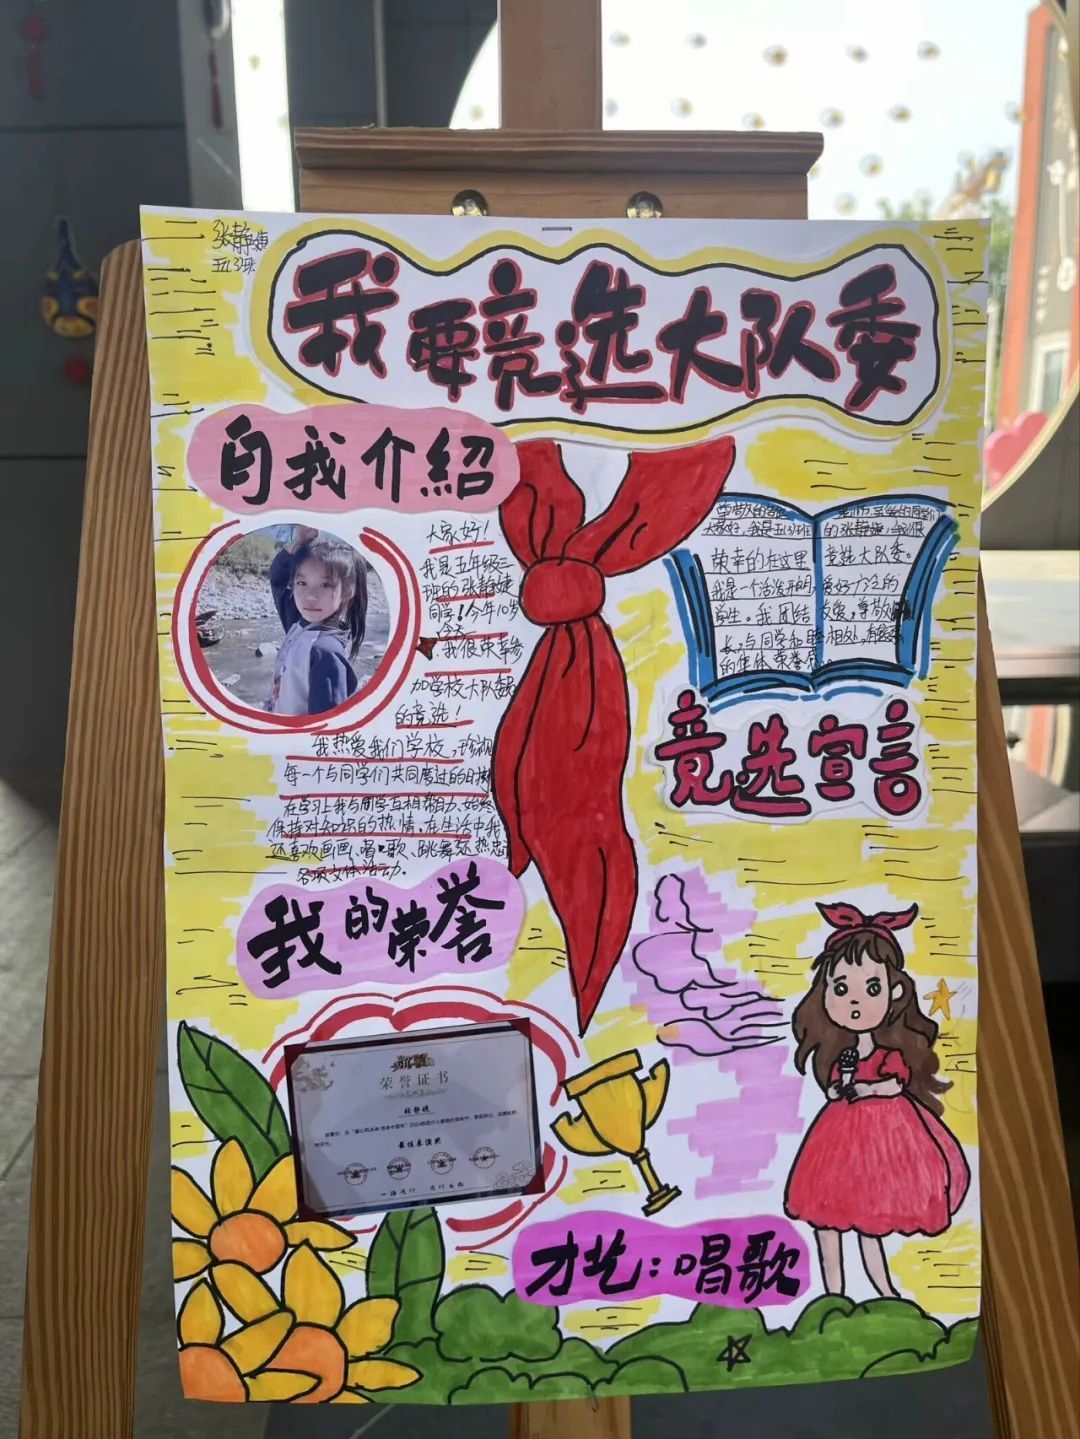 张静婕
五(3)班
我要竞选大队委
自我介紹
大家好！
我是五年级三
班的张静婕
同学！今年10岁
今天
我很荣幸参
加学校大队委
的竞选！
我热爱我们学校，珍视
每一个与同学们共同度过的日
在学习上我与同学互相帮助、始终
保持对知识的热情，在生活中我
还喜欢画画、唱歌、跳舞
各项文体活动。
大家好，我是五(3)班
的张静婕，
荣幸的在这里
竞选大队委。
我是一个活泼开朗，爱好广泛的
学生。我团结友爱，尊敬
长，与同学和睦相处，有
的集体荣誉感。
竞选宣言
我的荣誉
荣誉证书
张静婕
最佳表演奖
才艺：唱歌